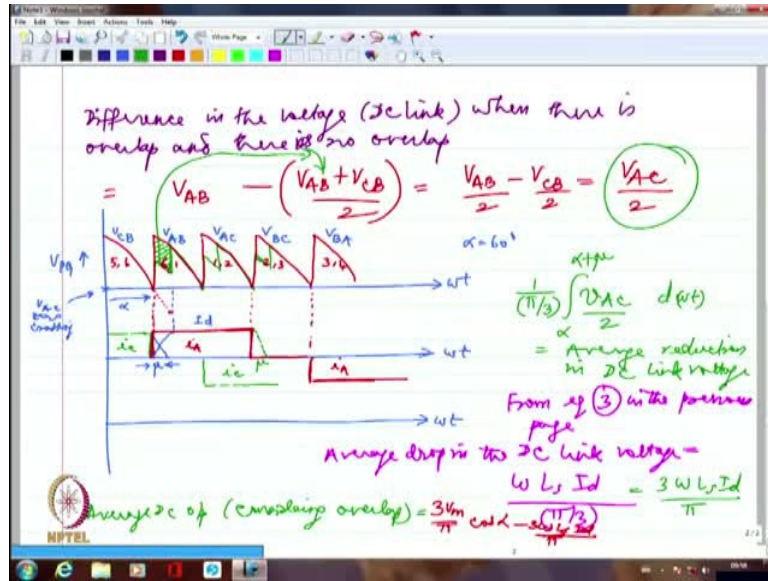 Note1 - Windows Journal
File Edit View Insert Actions Tools Help
Whole Page
Difference in the voltage (DC link) when there is
overlap and there is no overlap
= V_AB - (V_AB + V_CB / 2) = V_AB / 2 - V_CB / 2 = V_AC / 2
V_CB V_AB V_AC V_BC V_BA
α = 60°
V_PQ ↑
5,6 6,1 1,2 2,3 3,4
ωt
V_AC zero crossing
α
1/(π/3) ∫_α^{α+μ} V_AC / 2 d(ωt)
Id
i_c i_A μ
ωt
= Average reduction
in DC link voltage
μ i_c i_A
From eq (3) in the previous
page
ωt
Average drop in the DC link voltage =
ω Ls Id / (π/3) = 3 ω Ls Id / π
Average DC o/p (considering overlap) = 3Vm / π cos α - 3ωLs Id / π
NPTEL
2/2
2
09:58